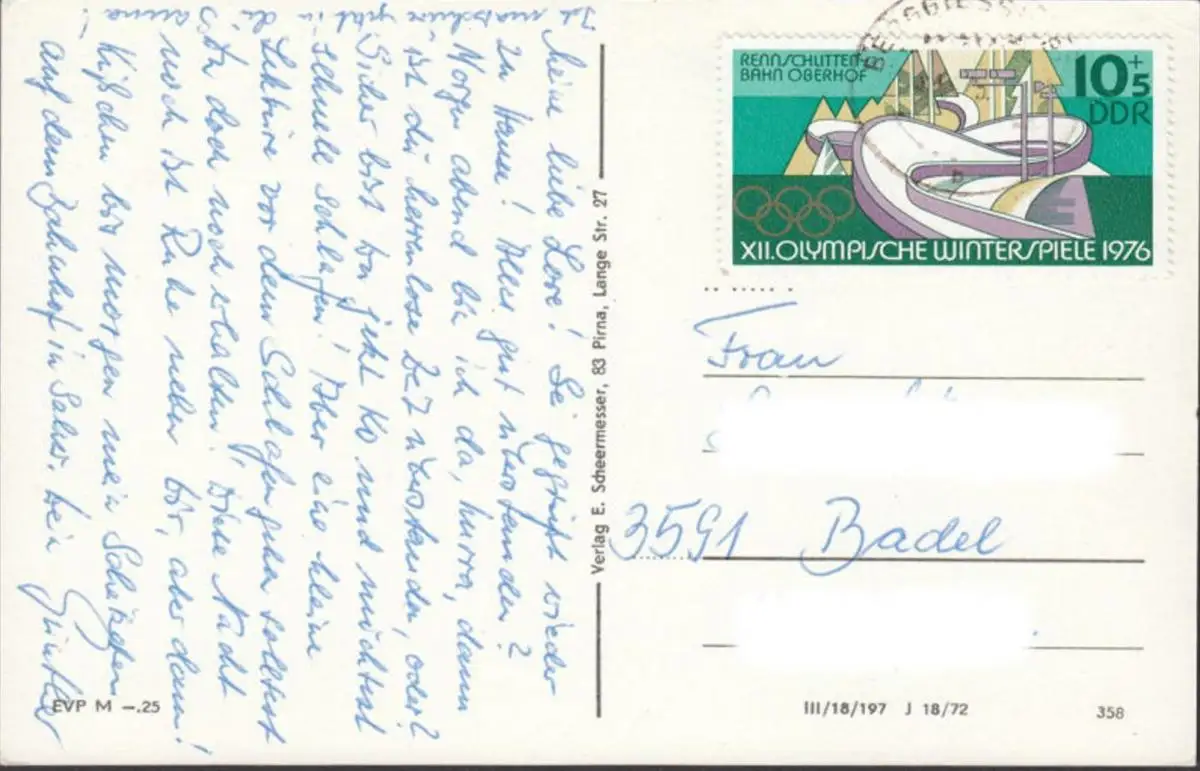 Meine liebe Lore! Sei gegrüßt wieder
zu Hause! Alles gut überstanden?
Morgen abend bin ich da, hurra, dann
ist die herrenlose Zeit überstanden, oder?
Sicher bist du jetzt ko und möchtest
schnell schlafen! Aber eine kleine
Lektüre vor dem Schlafengehn solltest
doch noch erhalten! Diese Nacht
noch ist Ruhe neben Dir, aber dann!
Küßchen bis morgen mein Schätzchen
auf dem Bahnhof in Salzw. Dein
Günther
Verlag E. Scheermesser, 83 Pirna, Lange Str. 27
EVP M –.25
RENNSCHLITTEN-
BAHN OBERHOF
10+5
DDR
XII. OLYMPISCHE WINTERSPIELE 1976
Frau
3591 Badel
III/18/197 J 18/72
358